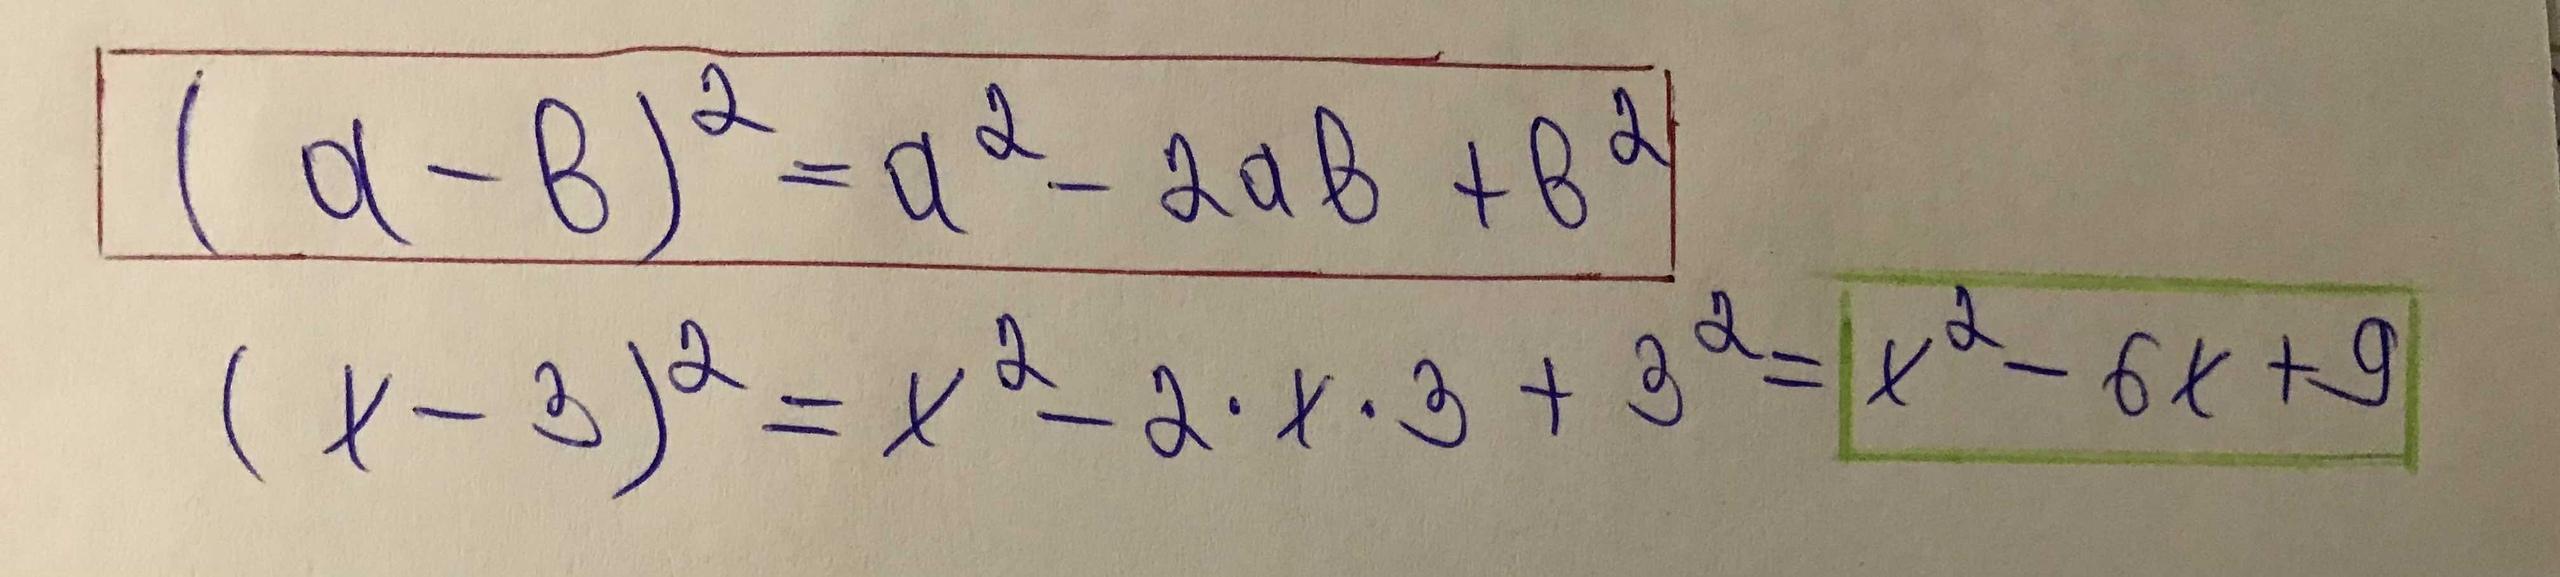 (a-b)² = a² - 2ab + b²
(x-3)² = x² - 2·x·3 + 3² = x² - 6x + 9